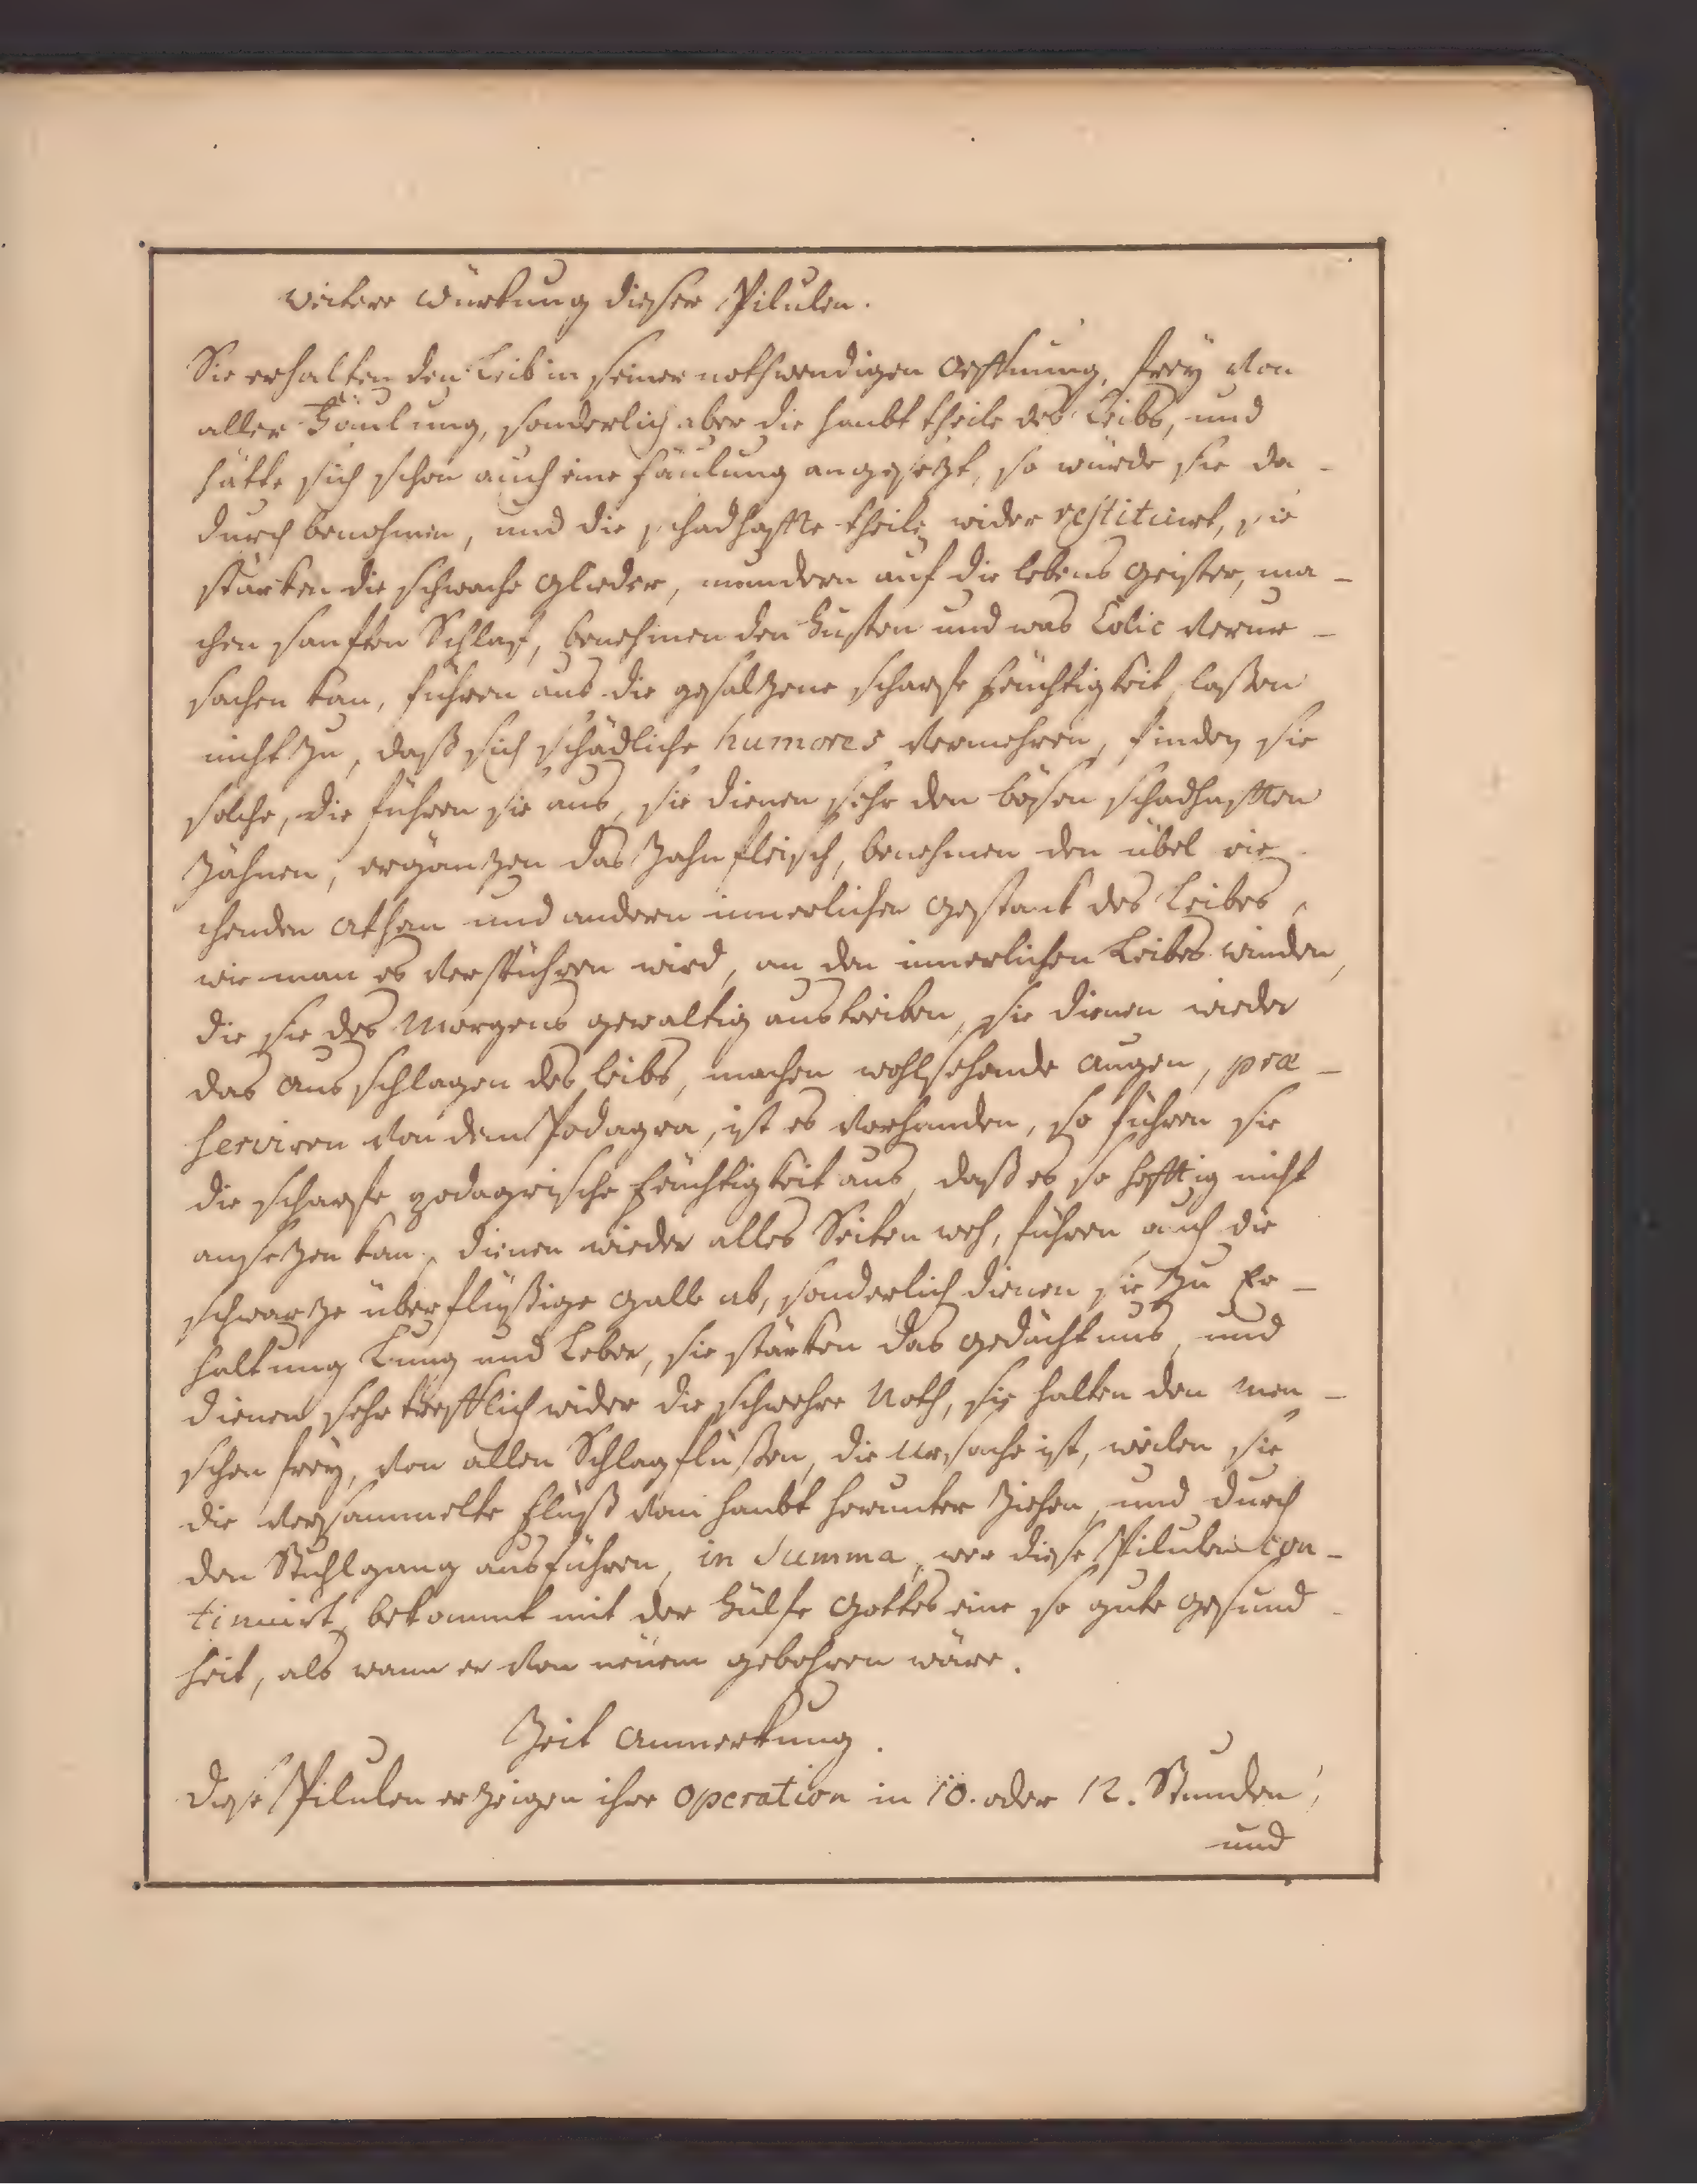 weitere Würkung dieser Pilulen.
Sie erhalten den Leib in seiner nothwendigen Oeffnung, frey von
aller Fäulung, sonderlich aber die haubt theile des Leibs, und
hätte sich schon auch eine fäulung angesetzt, so würde sie da-
durch benohmen, und die schadhaffte theile wider restituirt, sie
stärken die schwache Glieder, mundern auf die lebens geister, ma-
chen sanften Schlaf, benehmen den Husten und was Colic verur-
sachen kan, führen aus die gesaltzene scharfe feuchtigkeit, laßen
nicht zu, daß sich schädliche humores vermehren, finden sie
solche, die führen sie aus, sie dienen sehr den bösen schadhafften
Zähnen, ergäntzen das Zahnfleisch, benehmen den übel rie-
chenden Athem und andern innerlichen gestank des Leibes,
wie man es verspühren wird, an den innerlichen Leibes winden,
die sie des Morgens gewaltig austreiben, sie dienen wieder
das ausschlagen des leibs, machen wohlsehende augen, præ-
serviren von dem Podagra, ist es vorhanden, so führen sie
die scharfe podagrische feuchtigkeit aus, daß es so hefftig nicht
ansetzen kan, dienen wieder alles Seiten weh, führen auch die
schwartze überflüßige galle ab, sonderlich dienen sie zu Er-
haltung Lung und Leber, sie stärken das gedächtnus, und
dienen sehr trefflich wider die schwehre Noth, sie halten den Men-
schen frey, von allen Schlagflüßen, die Ursache ist, weilen sie
die versammelte Flüß vom haubt herunter ziehen, und durch
den Stuhlgang ausführen, in Summa, wer diese Pilulen con-
tinuirt, bekommt mit der Hülfe Gottes eine so gute gesund-
heit, als wann er von neüem gebohren wäre.
Zeit Anmerkung.
Diese Pilulen erzeigen ihre Operation in 10. oder 12. Stunden,
und